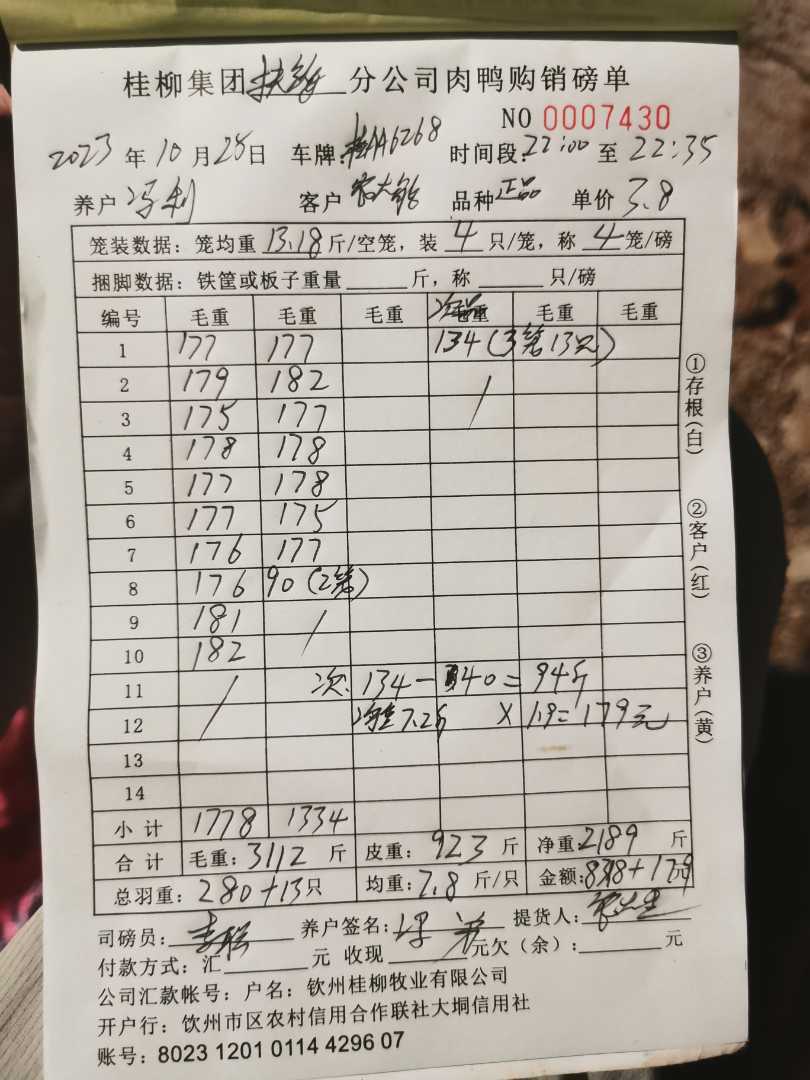 桂柳集团 分公司肉鸭购销磅单
NO 0007430
2023 年 10 月 28 日 车牌: 桂AA6268 时间段: 22:00 至 22:35
养户 冯利 客户 品种 正品 单价 3.8
笼装数据: 笼均重 13.18 斤/空笼, 装 4 只/笼, 称 4 笼/磅
捆脚数据: 铁筐或板子重量 斤, 称 只/磅
编号 毛重 毛重 毛重 次品 毛重 毛重
1 177 177 134(3笼13只)
2 179 182 /
3 175 177
4 178 178
5 177 178
6 177 175
7 176 177
8 176 90(2笼)
9 181 /
10 182
11 / 次: 134-40=94斤
12 7.2斤 X 1.9=179元
13
14
小计 1778 1334
合计 毛重: 3112 斤 皮重: 923 斤 净重: 2189 斤
总羽重: 280+13 只 均重: 7.8 斤/只 金额: +179
司磅员: 养户签名: 提货人:
付款方式: 汇 元 收现 元欠(余): 元
公司汇款帐号: 户名: 钦州桂柳牧业有限公司
开户行: 钦州市区农村信用合作联社大垌信用社
账号: 8023 1201 0114 4296 07
①存根(白)
②客户(红)
③养户(黄)